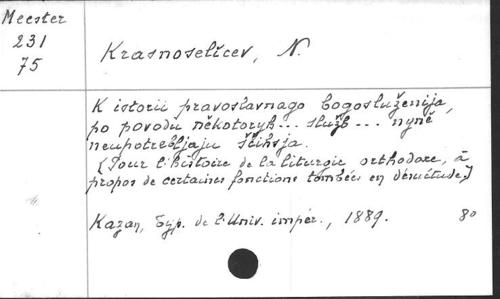 Meester
231
75
Krasnoselĭcev, N.
K istorii pravoslavnago bogosluženija,
po povodu někotoryh... služb... nyně
neupotrebljaju štihsja.
(Pour l'histoire de la liturgie orthodoxe, à
propos de certaines fonctions tombées en désuétude.)
Kazan, Typ. de l'Univ. impér., 1889. 80